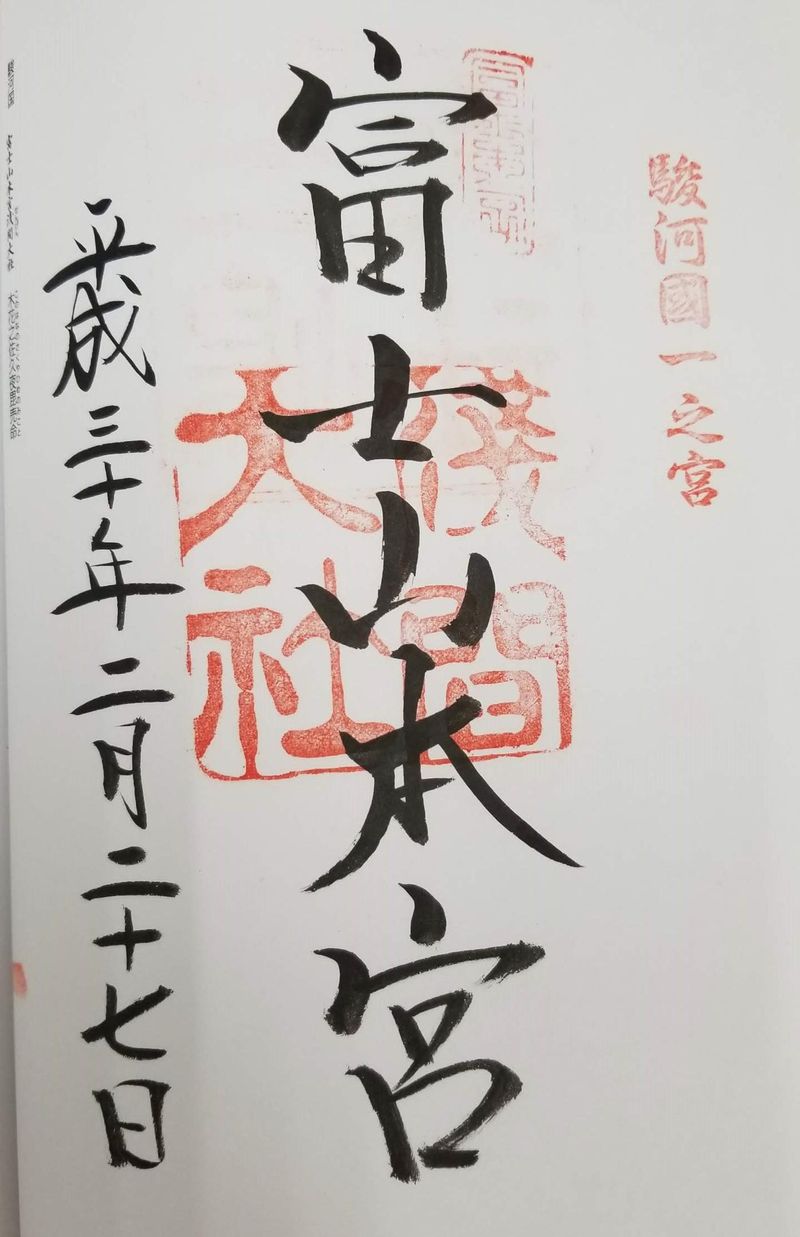 駿河國一之宮
富士山本宮
淺間
大社
平成三十年二月二十七日